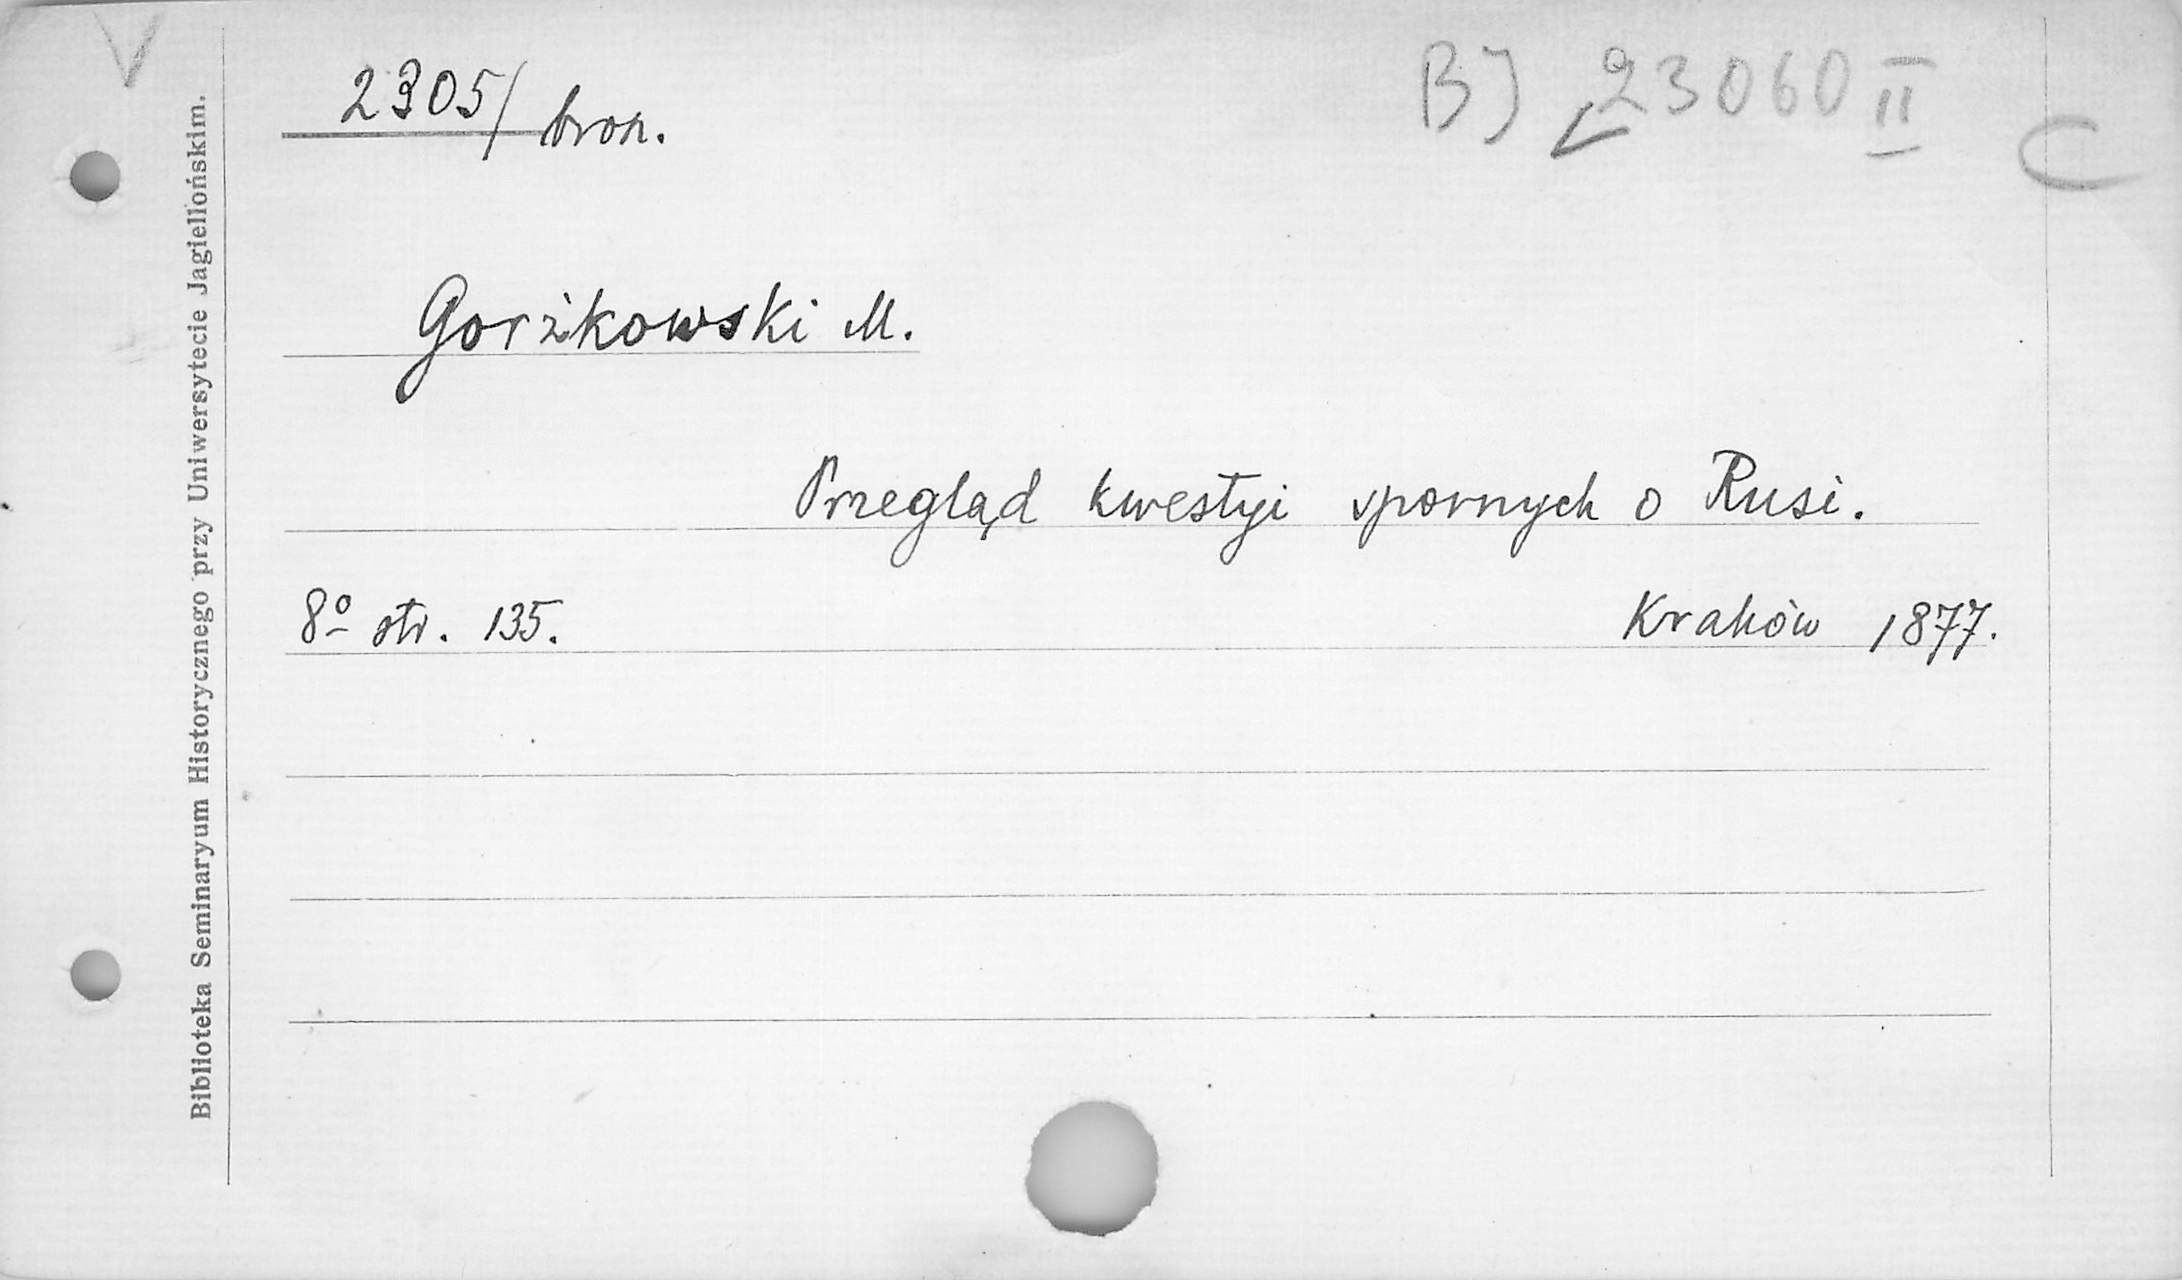 V
2305/ bron.
BJ 23060 II
C
Gorżkowski M.
Przegląd kwestyi spornych o Rusi.
8º str. 135.
Kraków 1877.
Biblioteka Seminaryum Historycznego przy Uniwersytecie Jagiellońskim.